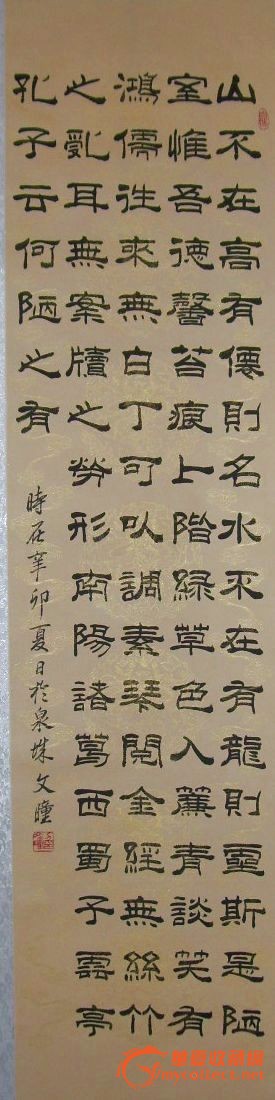 山不在高有僊則名水不在有龍則靈斯是陋
室惟吾德馨苔痕上階緑草色入簾青談笑有
鴻儒往來無白丁可以調素琴閱金經無絲竹
之亂耳無案牘之勞形南陽諸葛西蜀子雲亭
孔子云何陋之有
時在辛卯夏日於泉城文瞳